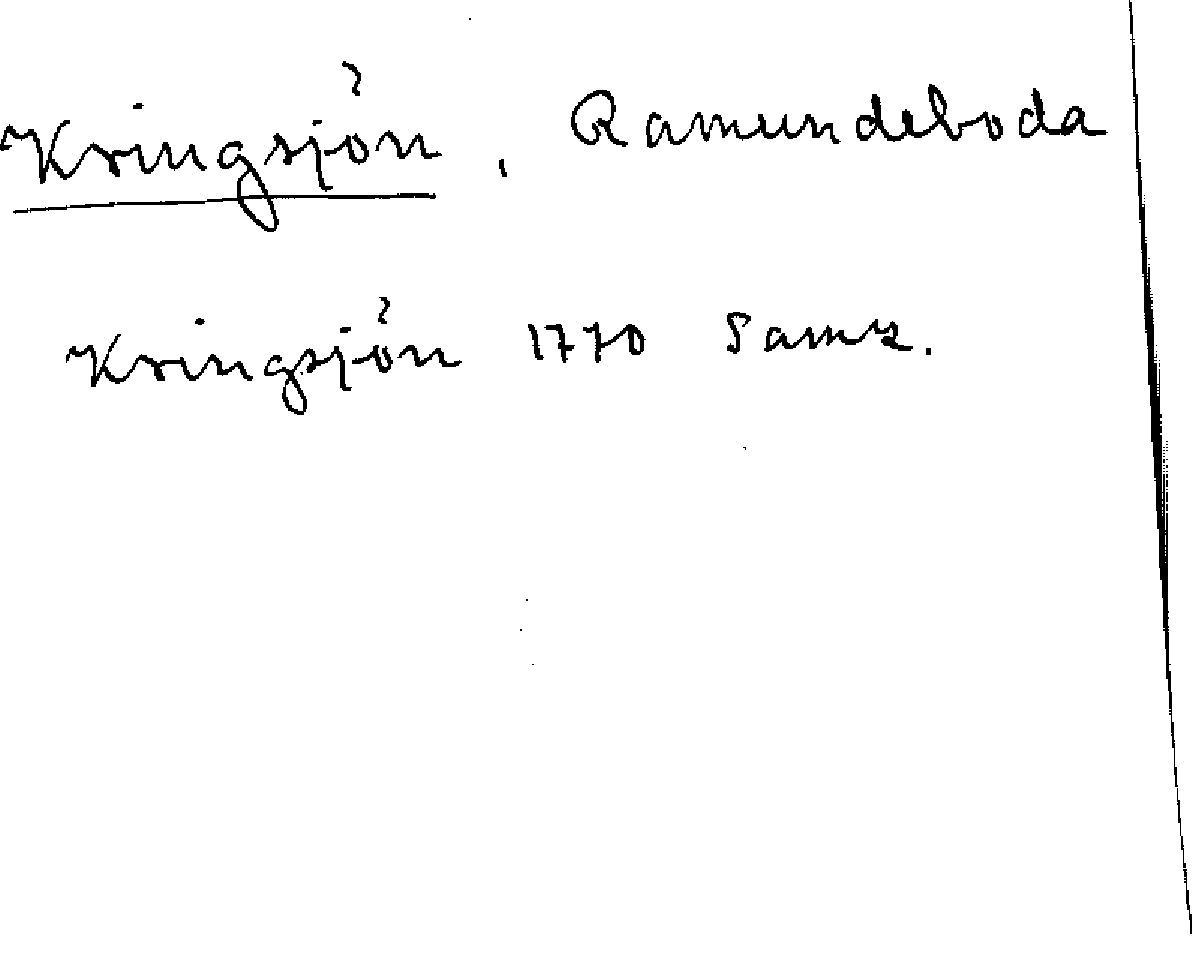 Kringsjön, Ramundeboda
Kringsjön 1770